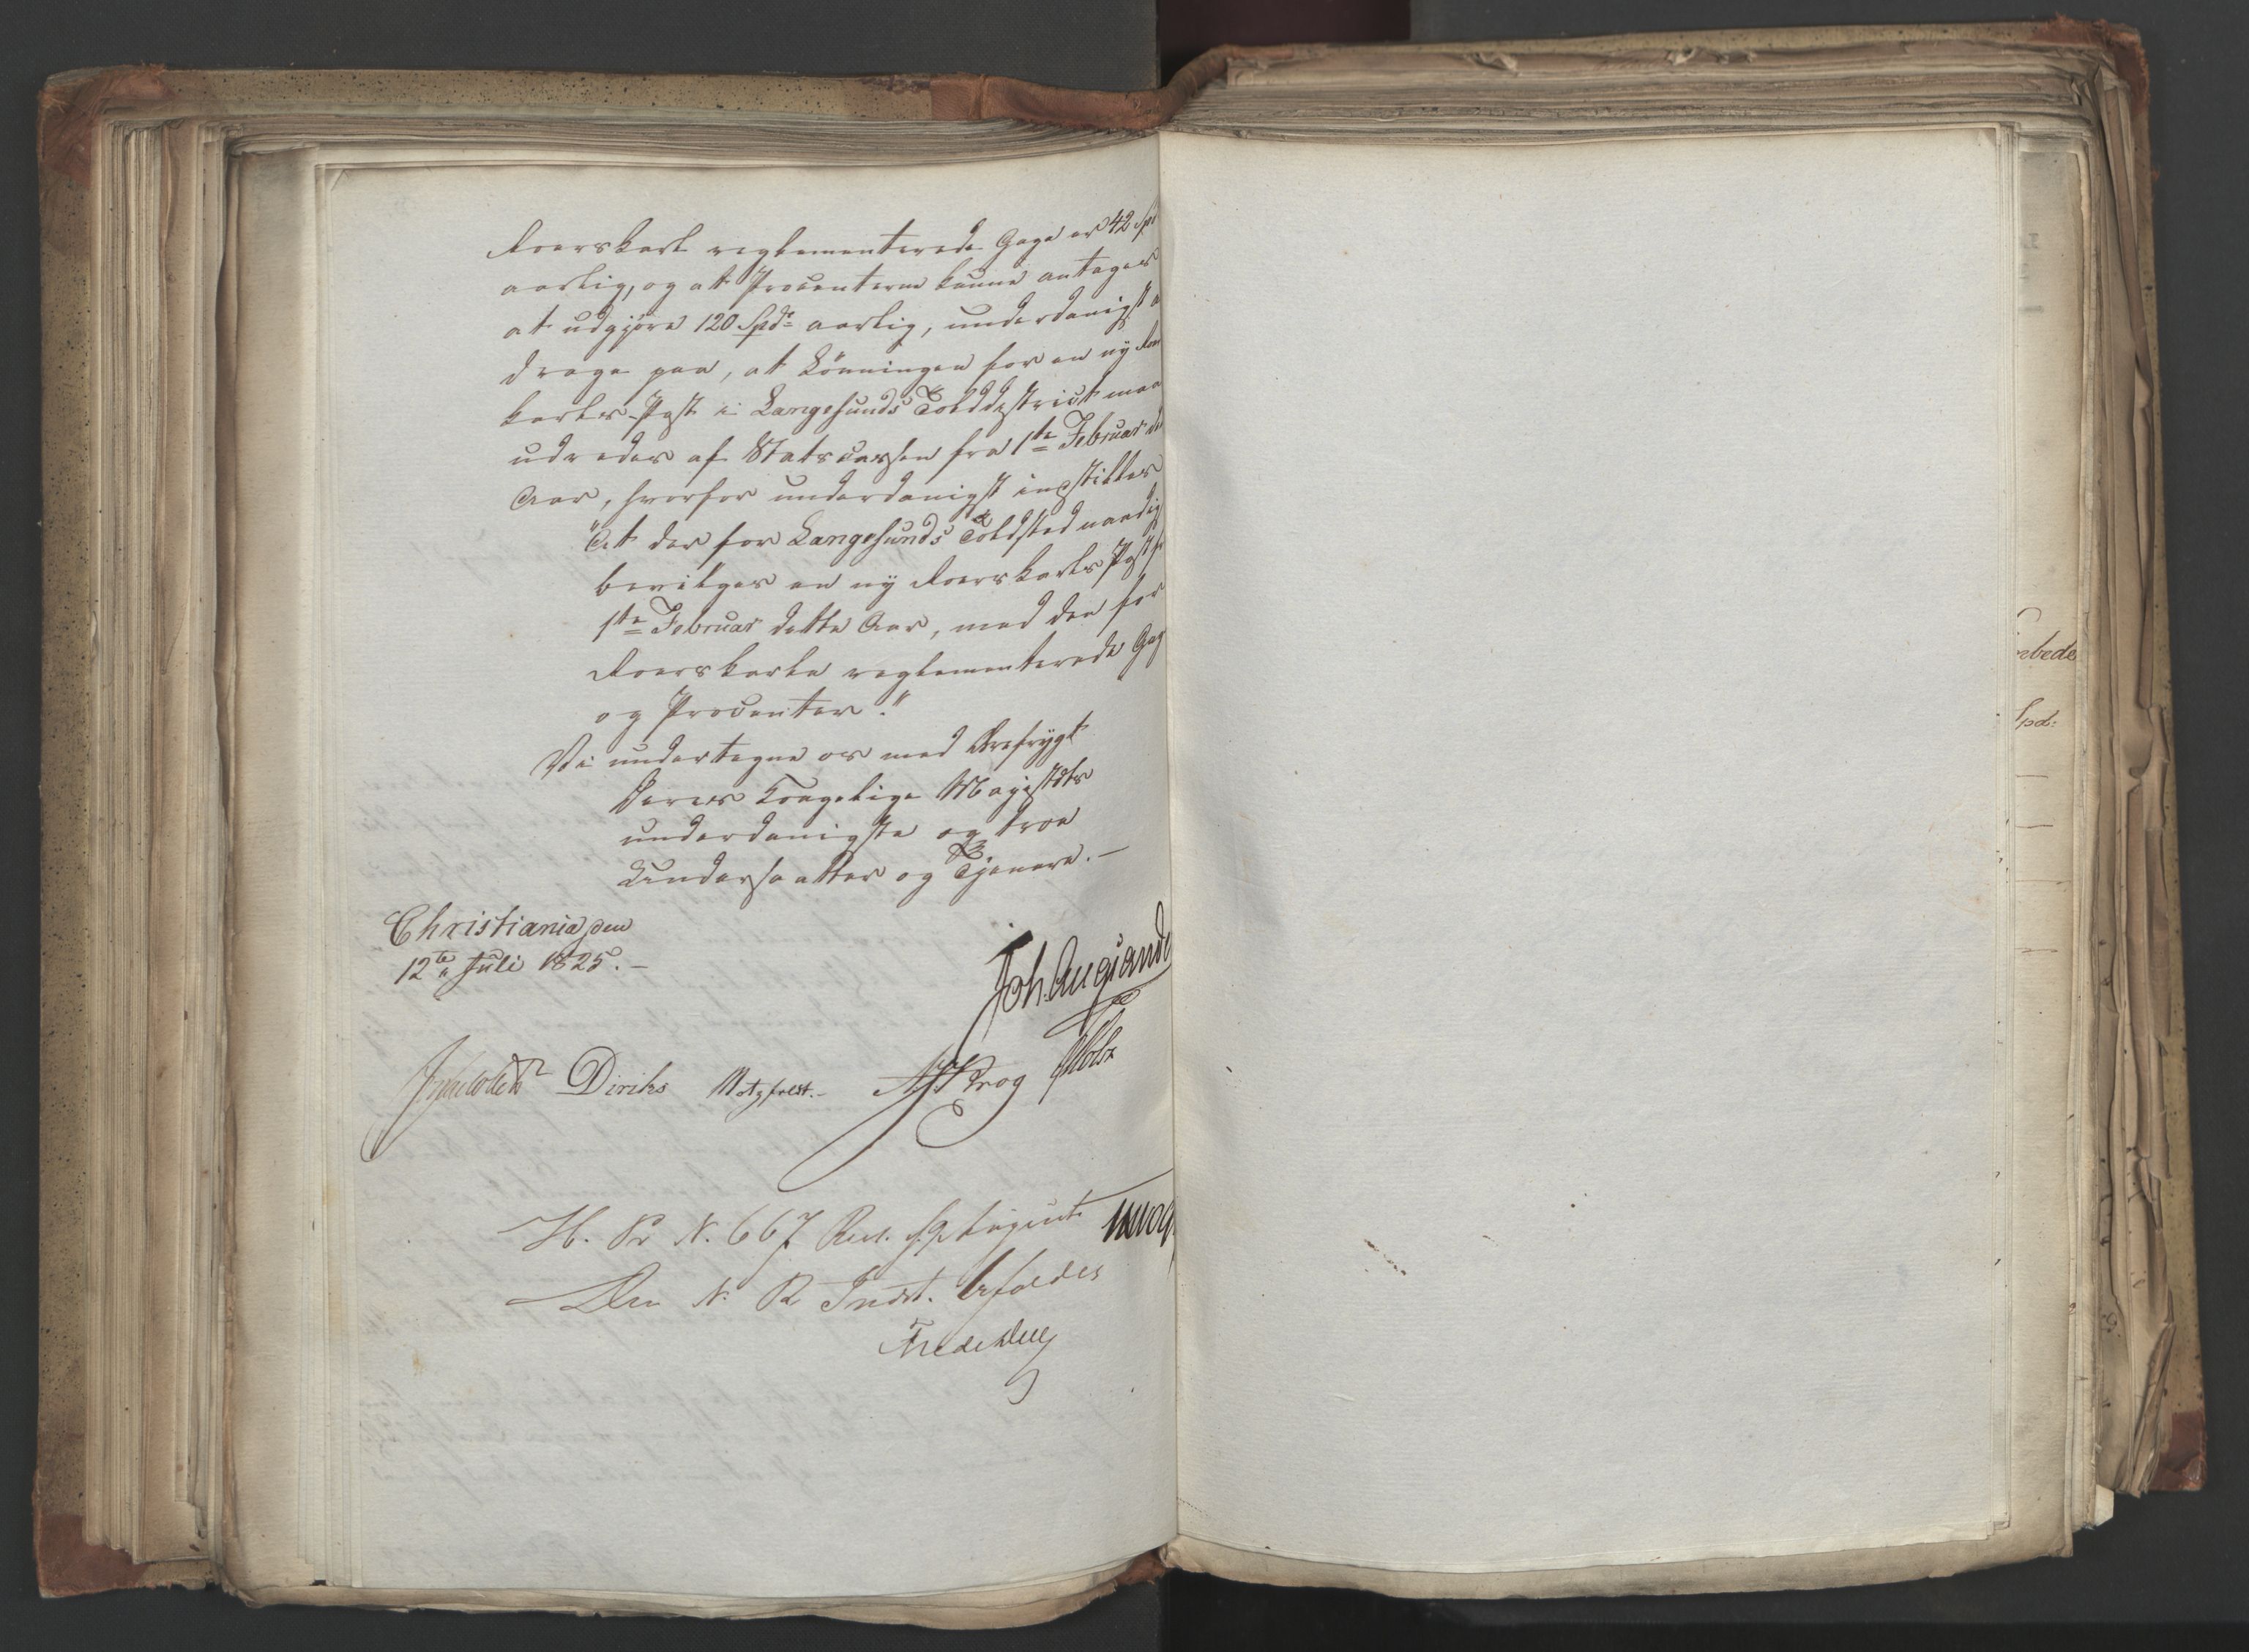 Roerskarl reglementerede Gage er 42 Spd
aarlig, og at Procenterne kunne antages
at udgjøre 120 Spd: aarlig, underdanigst a
drage paa, at Lønningen for en ny Roers
karls-Post i Langesunds Tolddistrict maa
udredes af Statscassen fra 1te Februar d.
Aar, hvorfor underdanigst indstilles
"At der for Langesunds Toldsted naadigst
bevilges en ny Roerskarls Post fr
1te Februar dette Aar, med den for
Roerskarle reglementerede Gag
og Procenter."
Vi undertegne os med Ærefrygt
Deres Kongelige Majestæts
underdanigste og troe
Undersaatter og Tjenere. —
Christiania den
12te Juli 1825. —
Joh. Aug. Sande
Holst
Diriks Motzfeldt. Krog
H. Pr N. 667
Den N. R Indst. bifaldes